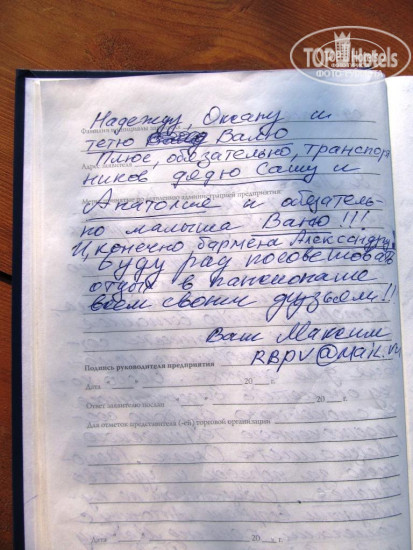 TOPHotels
ФОТО ГАЛЕРЕЯ
Надежду, Оксану и
Фамилия
тетю Валю
Адрес заявителя
Плюс, обязательно, транспор
ников дядю Сашу и
администрацией предприятия:
Анатолия и обязатель-
но малыша Ваню!!!
И, конечно, бармена Александру!
Буду рад посоветовать
отдых в пансионате
всем своим друзьям!!
Ваш Максим
RBPV@mail.ru
Подпись руководителя предприятия
Дата " " 20 г.
Ответ заявителю послан
Дата " " 20 г.
Для отметок представителя (-ей) торговой организации
Дата " " 20 г.